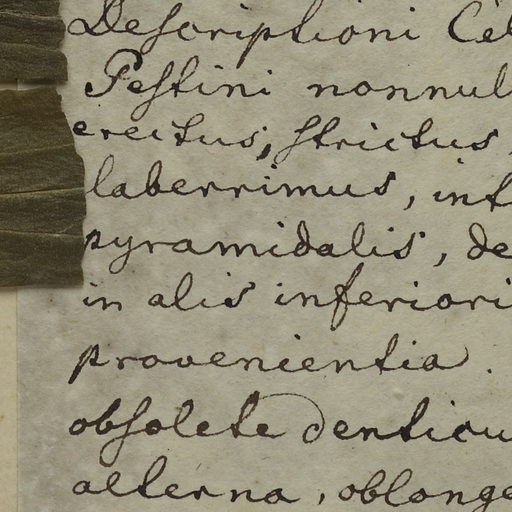 Descriptioni Cel
Pestini nonnul
erectus, strictus,
laberrimus, inf
pyramidalis, de
in alis inferiori
provenientia.
obsolete denticu
alterna, oblonge